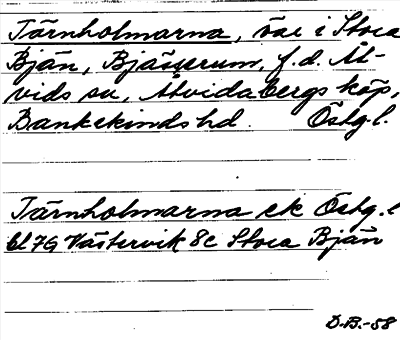 Tärnholmarna, öar i Stora
Bjän, Björsäterum, f.d. Åt-
vids sn, Åtvidabergs köp,
Bankekinds hd. Östg.l.
Tärnholmarna ek Östg.l
bl 7G Västervik 8c Stora Bjän
D.B.-58